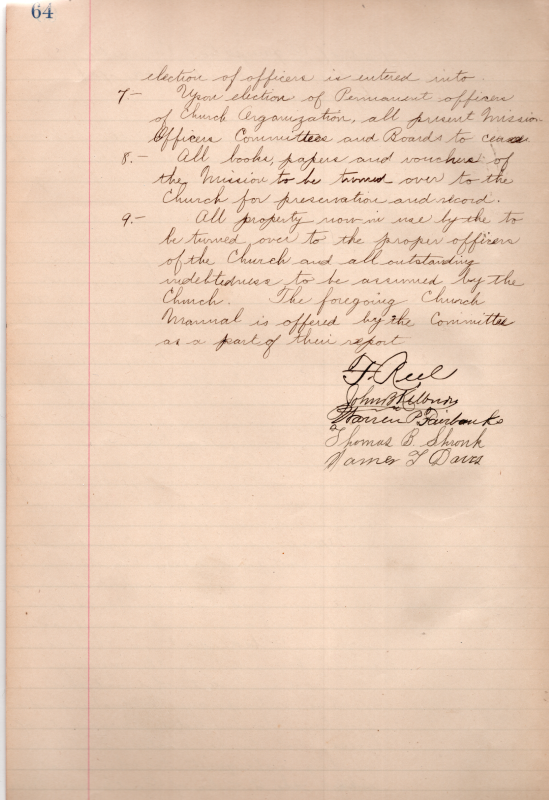 64
election of officers is entered into.
7.- Upon election of Permanent officers
of Church Organization, all present Mission
Officers Committees and Boards to cease.
8.- All books, papers and vouchers of
the Mission to be turned over to the
Church for preservation and record.
9.- All property now in use by the to
be turned over to the proper officers
of the Church and all outstanding
indebtedness to be assumed by the
Church. The foregoing Church
Manual is offered by the Committee
as a part of their report
Reel
John
Warren P Fairbanks
Thomas B. Shronk
Davis